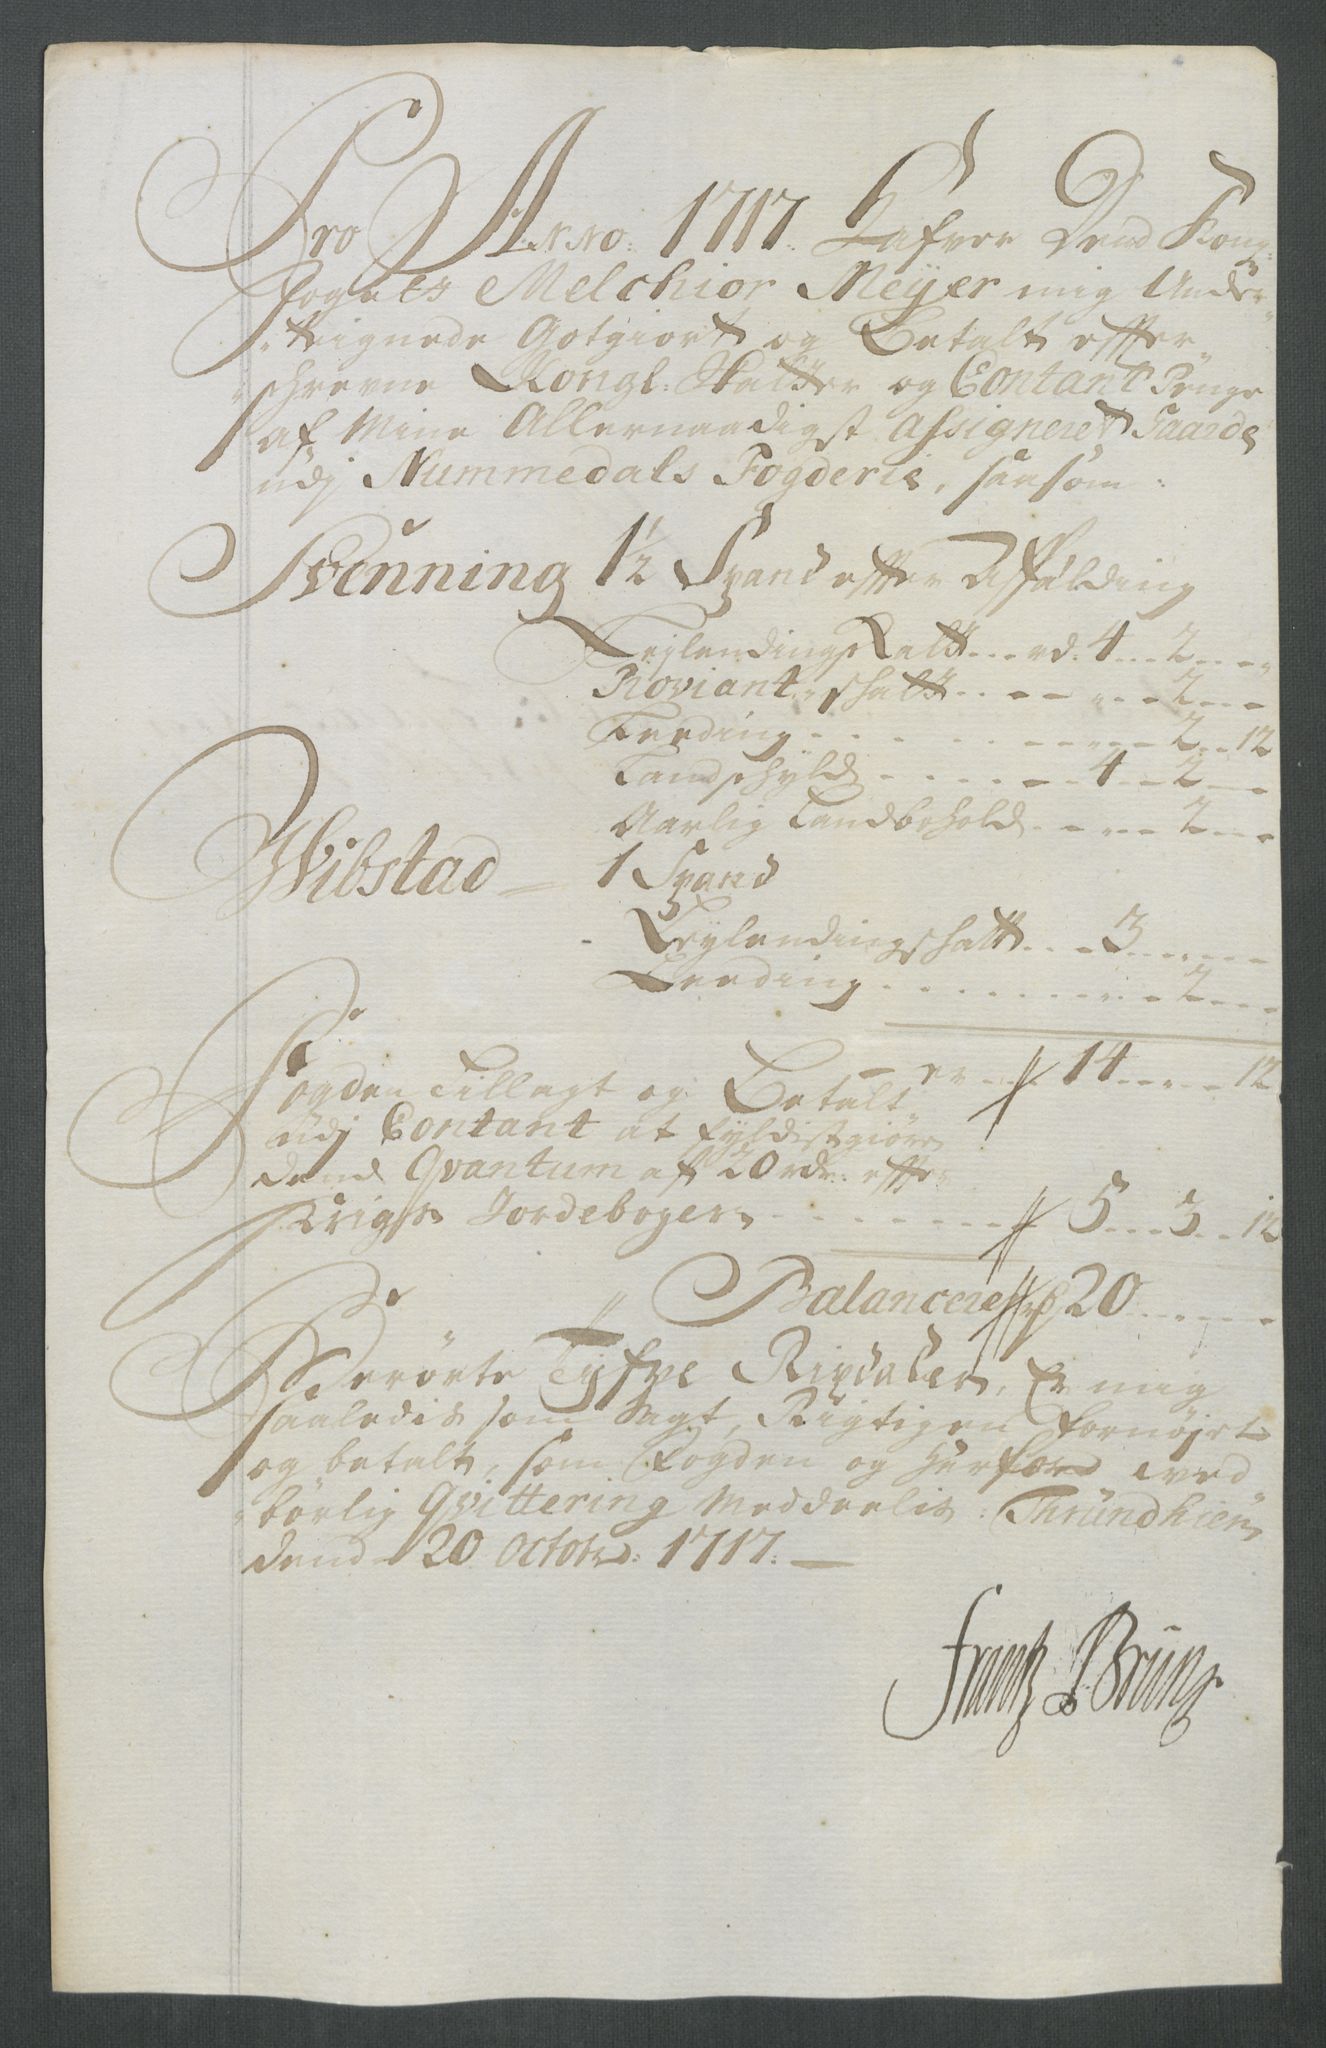 Pro Anno: 1717. Hafver Dend Kong:
fogets Melchior Meÿer mig Under-
-teignede Gotgiort og Betalt effter
schrevne Kongl: Skatter og Contant Penge
af Mine Allernaadigst Assigneret Gaarde
udj Nummedals Fogderie, saasom:
Svenning 1½ Spand effter Affälding
Leÿlendings Skatt ... rd. 4 .. 2 ...
Proviant-schatt .. - - ... 2 ...
Leeding ... 2 .. 12
Landschÿld ... 4 .. 2 ...
Aarlig Landbohold ... 2 ...
Wibstad - 1 Spand
Leÿlendingschatt ... 3 ...
Leeding ... 2 ...
er ... 14 ... 12
Fogden Tillagt og Betalt
udj Contant at fÿldistgiøre
dend Qvantum af 20 rdr: effter
Krigs Jordebogen ... 5 .. 3 .. 12
Balancere 20 ...
Berørte Tÿfve Rixdaler, Er mig
saaledis som Sagt, Rigtigen fornøjet
og betalt, som Fogden og herfor ved
børlig Qvittering Meddeelis: Thrundhiem
dend 20 Octobr: 1717. —
Frantz Brun